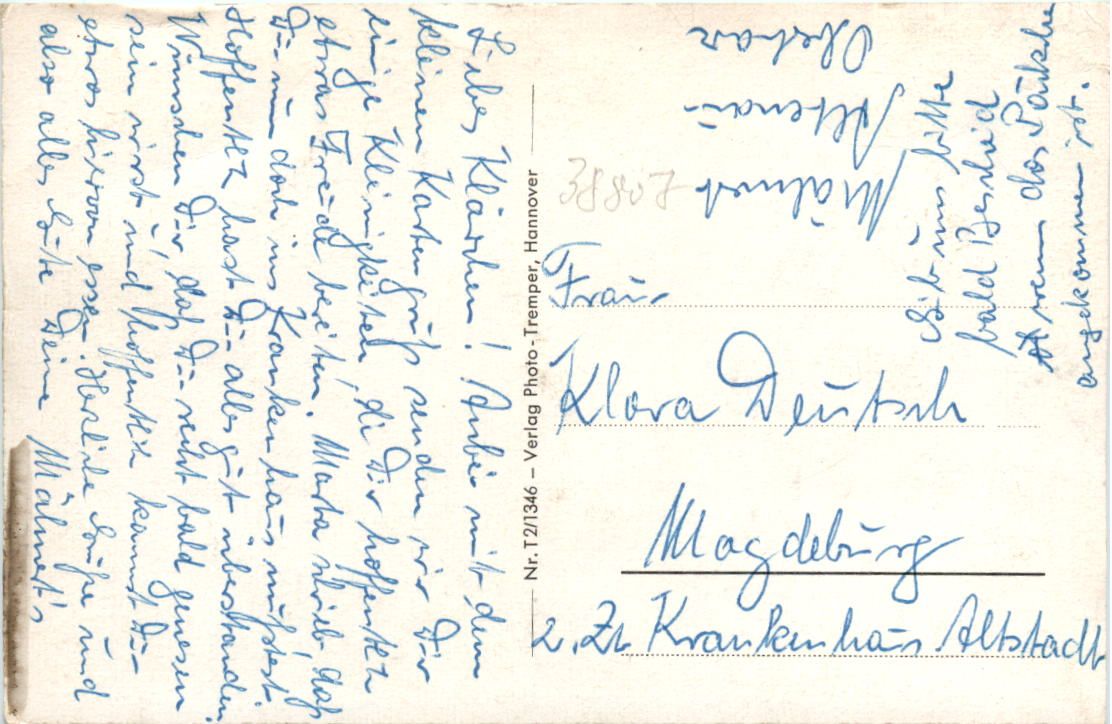 Liebes Klärchen! Anbei mit dem
kleinen Kartengruß senden wir Dir
einige Kleinigkeiten, die Dir hoffentlich
etwas Freude bereiten. Marta schrieb daß
Du nun doch ins Krankenhaus mußtest.
Hoffentlich hast Du alles gut überstanden.
Wünschen Dir, daß Du recht bald genesen
sein wirst und hoffentlich kannst Du
etwas hiervon essen. Herzliche Grüße und
also alles Gute Deine Mähnert's
Nr. T2/1346 – Verlag Photo-Tremper, Hannover
38807
Mähnert
Altenau
Oberharz
Gib uns bitte
bald Bescheid
wenn das Päckchen
angekommen ist.
Frau
Klara Deutsch
Magdeburg
z. Zt. Krankenhaus Altstadt